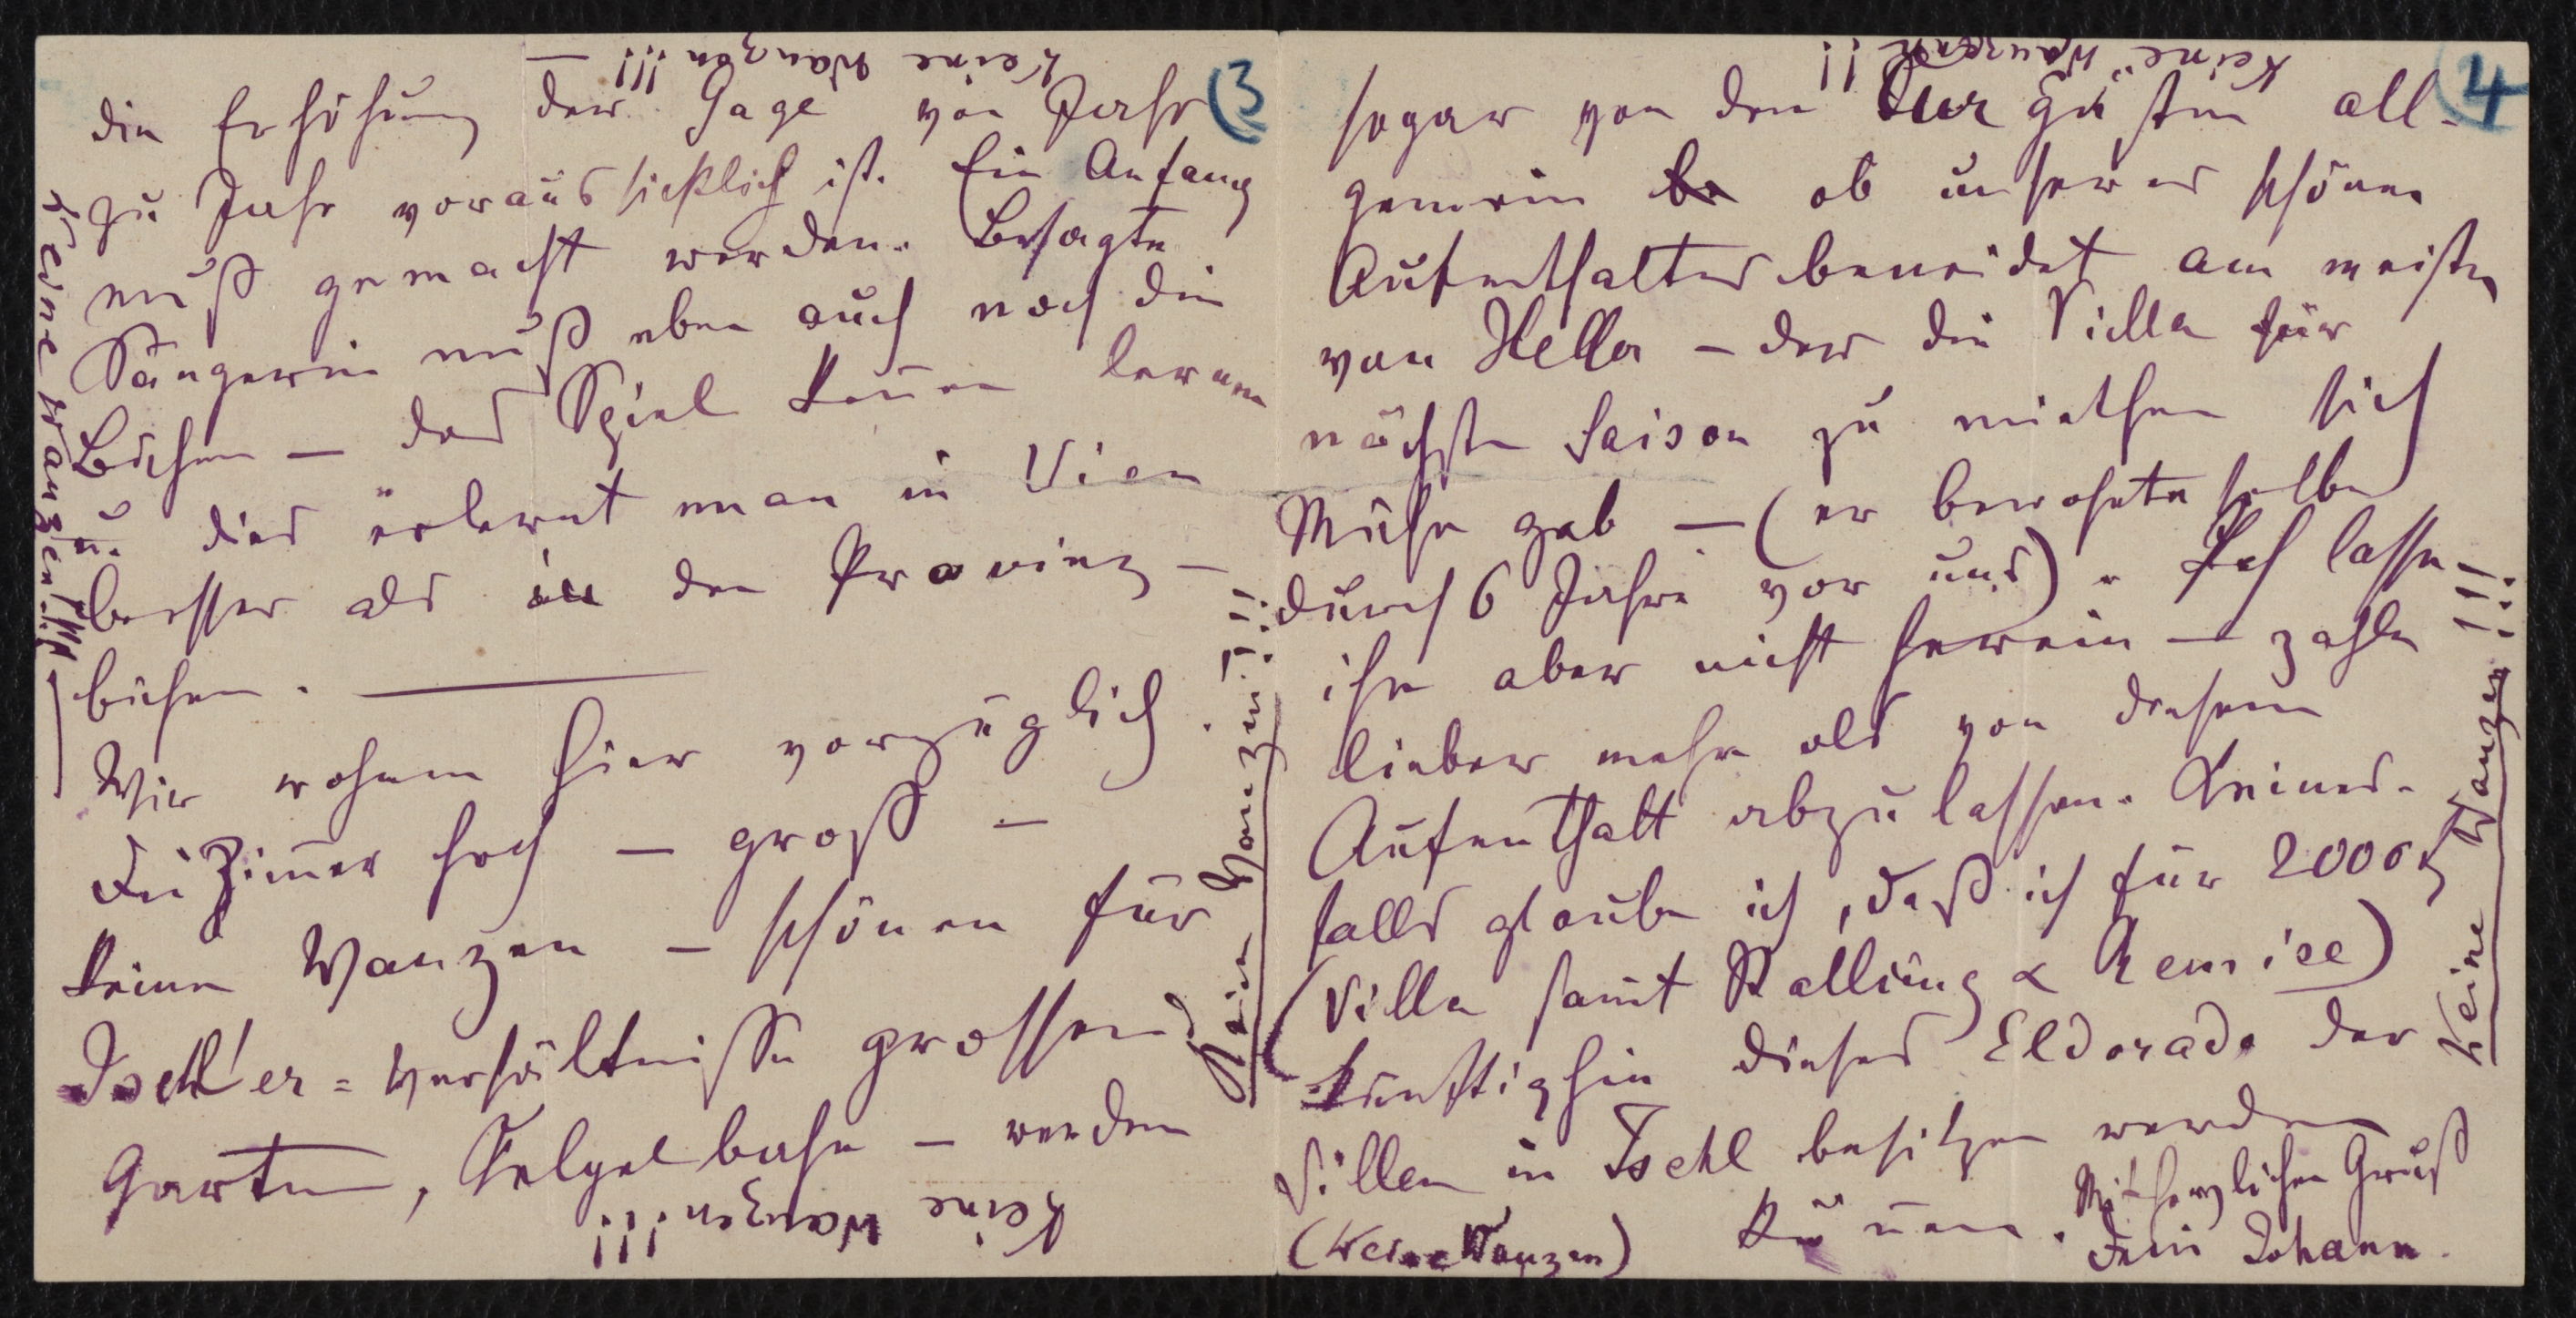 Keine Wanzen!!! —
3
die Erhöhung der Gage von Jahr
zu Jahr voraussichtlich ist. Ein Anfang
muß gemacht werden. Besagte
Sängerin muß eben auch noch die
Bühne — das Spiel kennen lernen
u. dies erlernt man in Wien
besser als in den Provinz-
bühnen. —
Wir wohnen hier vorzüglich.
Die Zimmer hoch — groß —
keine Wanzen — schönen für
Ischl'er-Verhältnisse grossen
Garten, Kegelbahn — werden
Keine Wanzen!!!
Keine Wanzen!!!! —
Keine Wanzen!!!
Keine Wanzen!!
4
sogar von den Curgästen all-
gemein ob unseres schönen
Aufenthaltes beneidet am meisten
von Hella — der die Villa für
nächste Saison zu miethen sich
Mühe gab — (er bewohnte selbe
durch 6 Jahre vor uns). Ich lasse
ihn aber nicht herein — zahle
lieber mehr als von diesem
Aufenthalt abzulassen. Keines-
falls glaube ich, daß ich für 2000 f
(Villa samt Stallung & Remise)
künftighin dieses Eldorado der
Villen in Ischl besitzen werden
können.
(Keine Wanzen)
Mit herzlichen Gruß
Dein Johann.
Keine Wanzen!!!